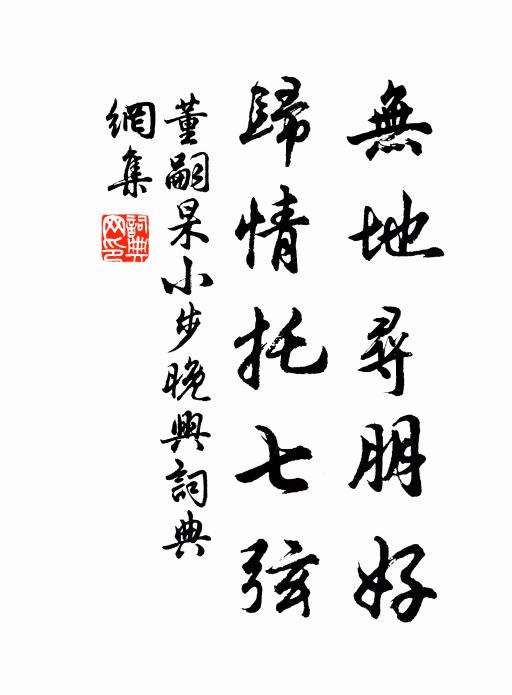 無地尋朋好
歸情托七弦
董嗣杲小步晚興詞典
網集
詞典
网印